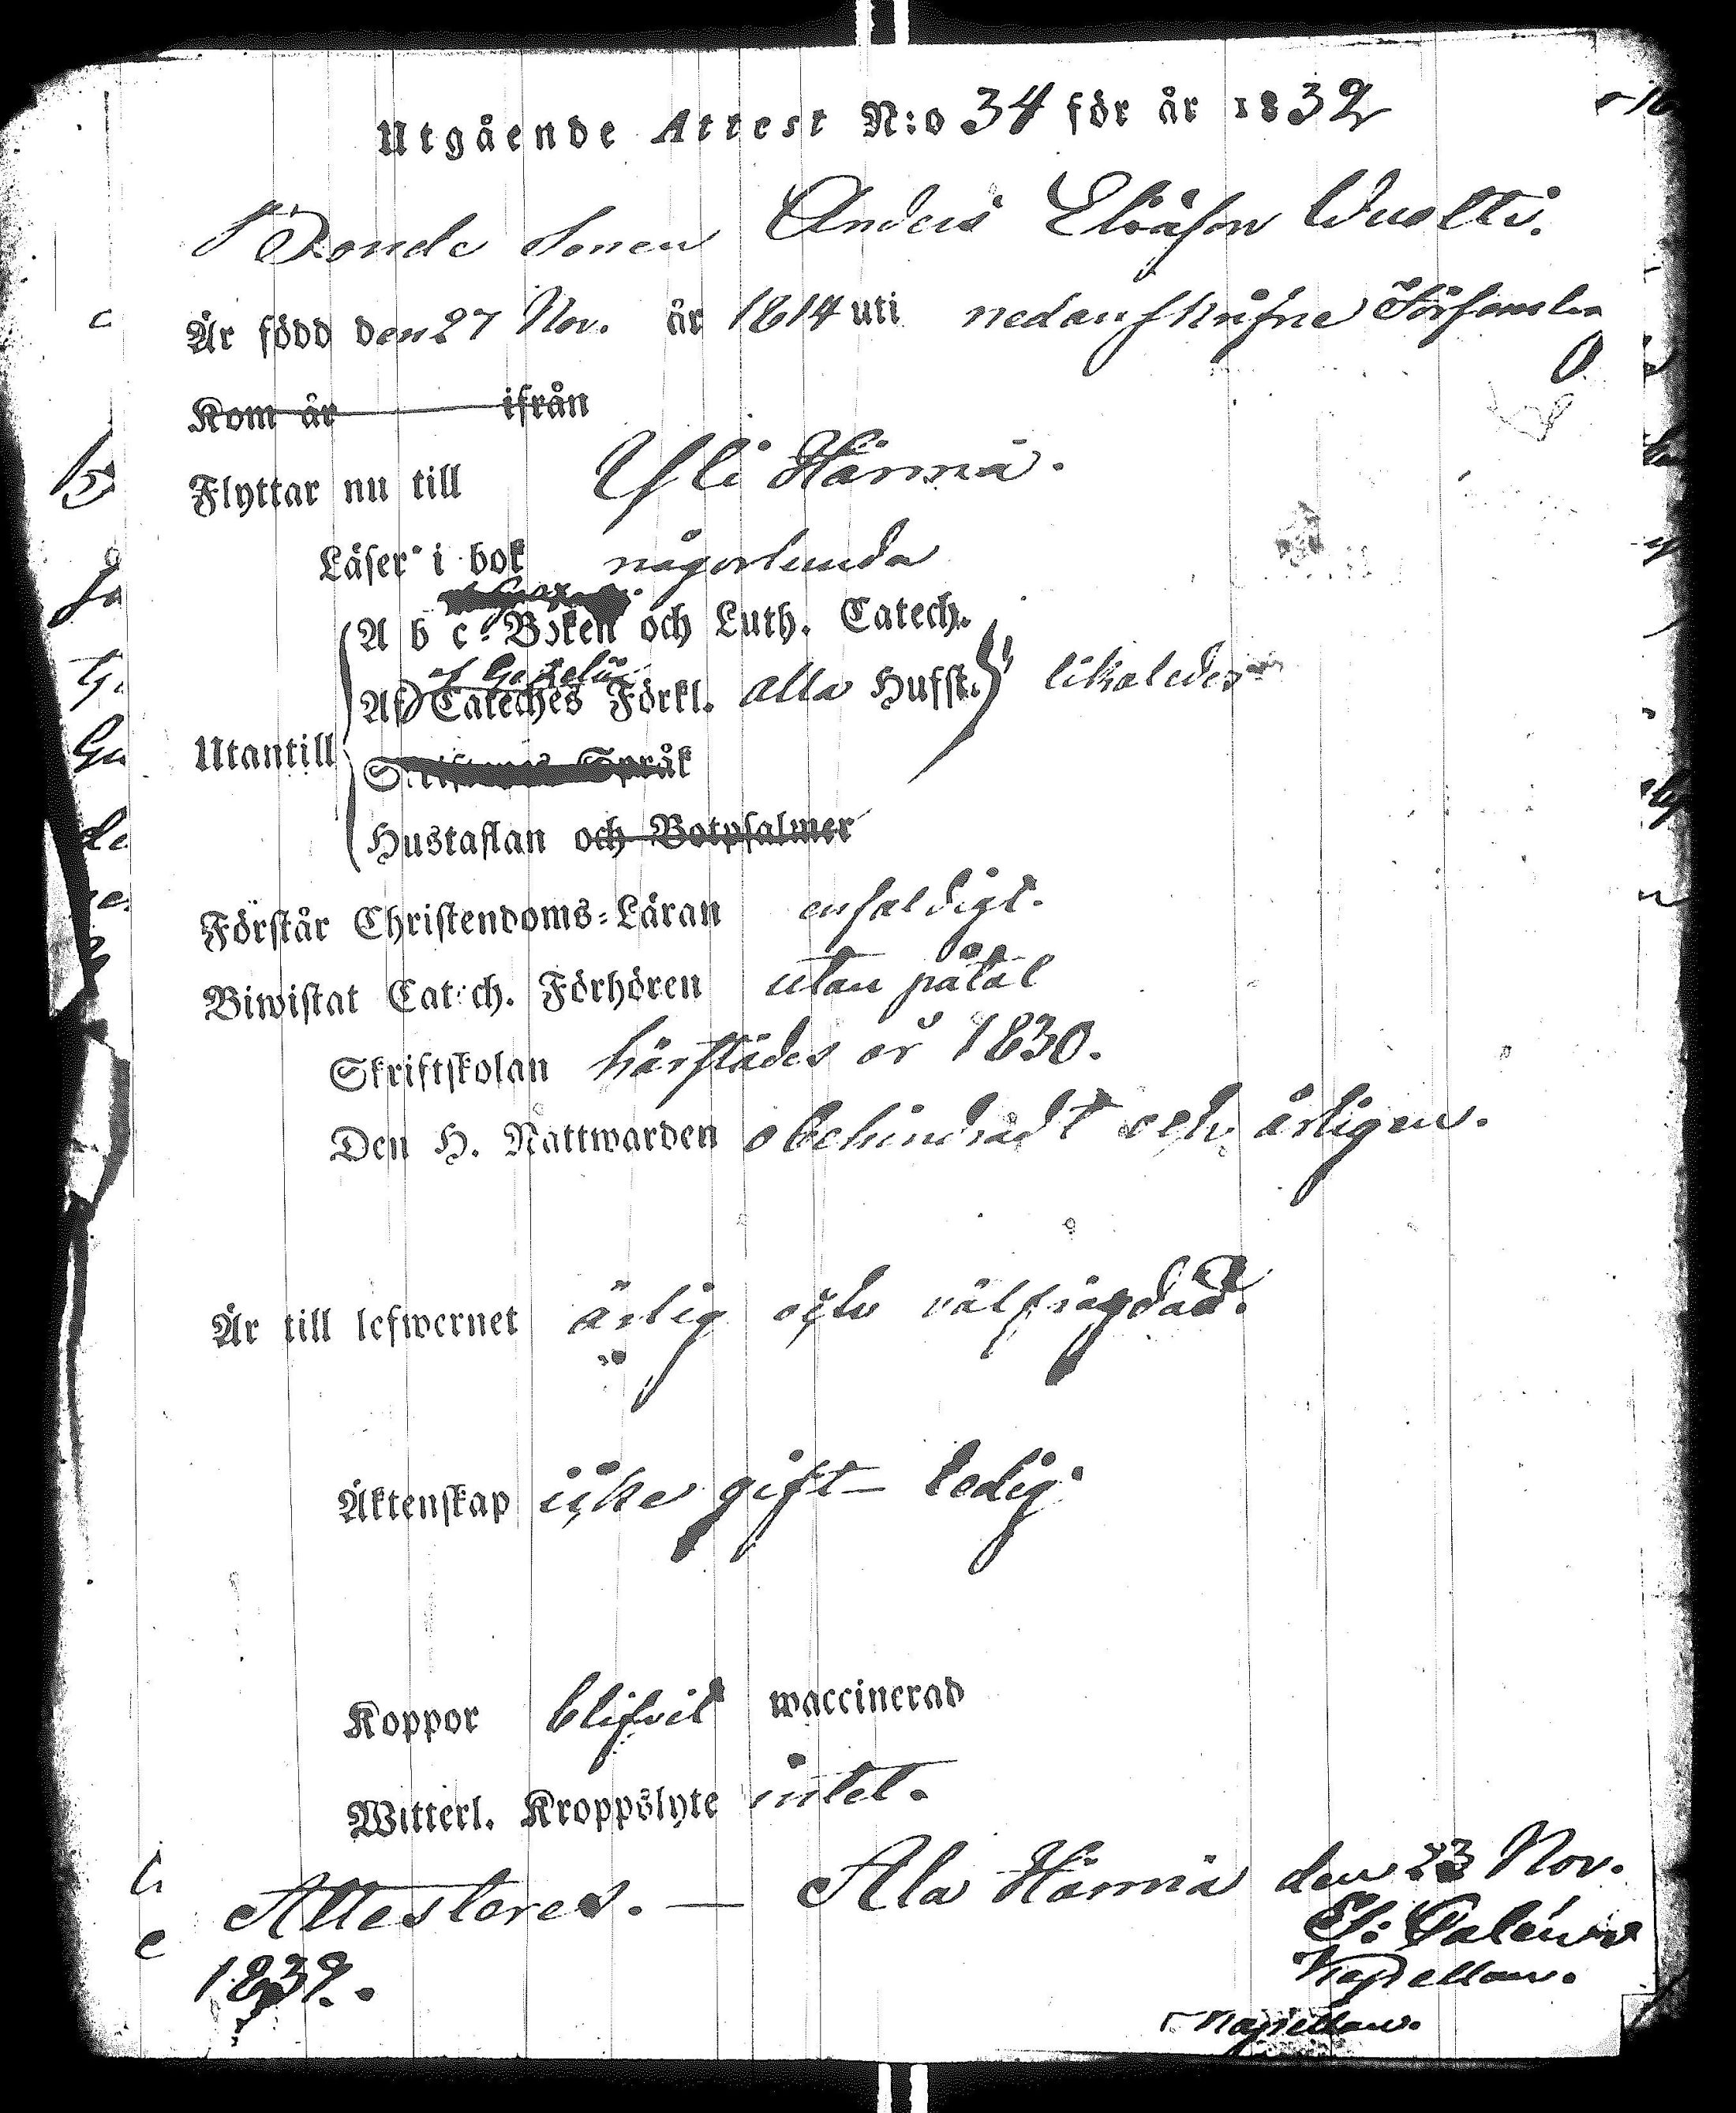 Utgående Attest N:o 34 för år 1832
Bonde Sonen Anders Eliäson Wuolti.
Är född den 27 Nov. år 1814 uti nedanskrifne Församlin
g
Kom år ifrån
Flyttar nu till Yli Härmä.
Läser i bok någorlunda
A b c-Boken och Luth. Catech.
Af Cateches Förkl. alla Hufst. likaledes
Utantill
Skriftenes Språk
Hustaflan och Botpsalmer
Förstår Christendoms-Läran enfaldigt.
Biwistat Catech. Förhören utan påtal
Skriftskolan härstädes år 1830.
Den H. Nattwarden obehindradt och årligen.
Är till lefwernet ärlig och välfrägdad.
Äktenskap icke gift - ledig
Koppor blifvit waccinerad
Witterl. Kroppslyte intet.
Attesteres. — Ala Härmä den 23 Nov.
1832.
Kapellan.
Kapellan.